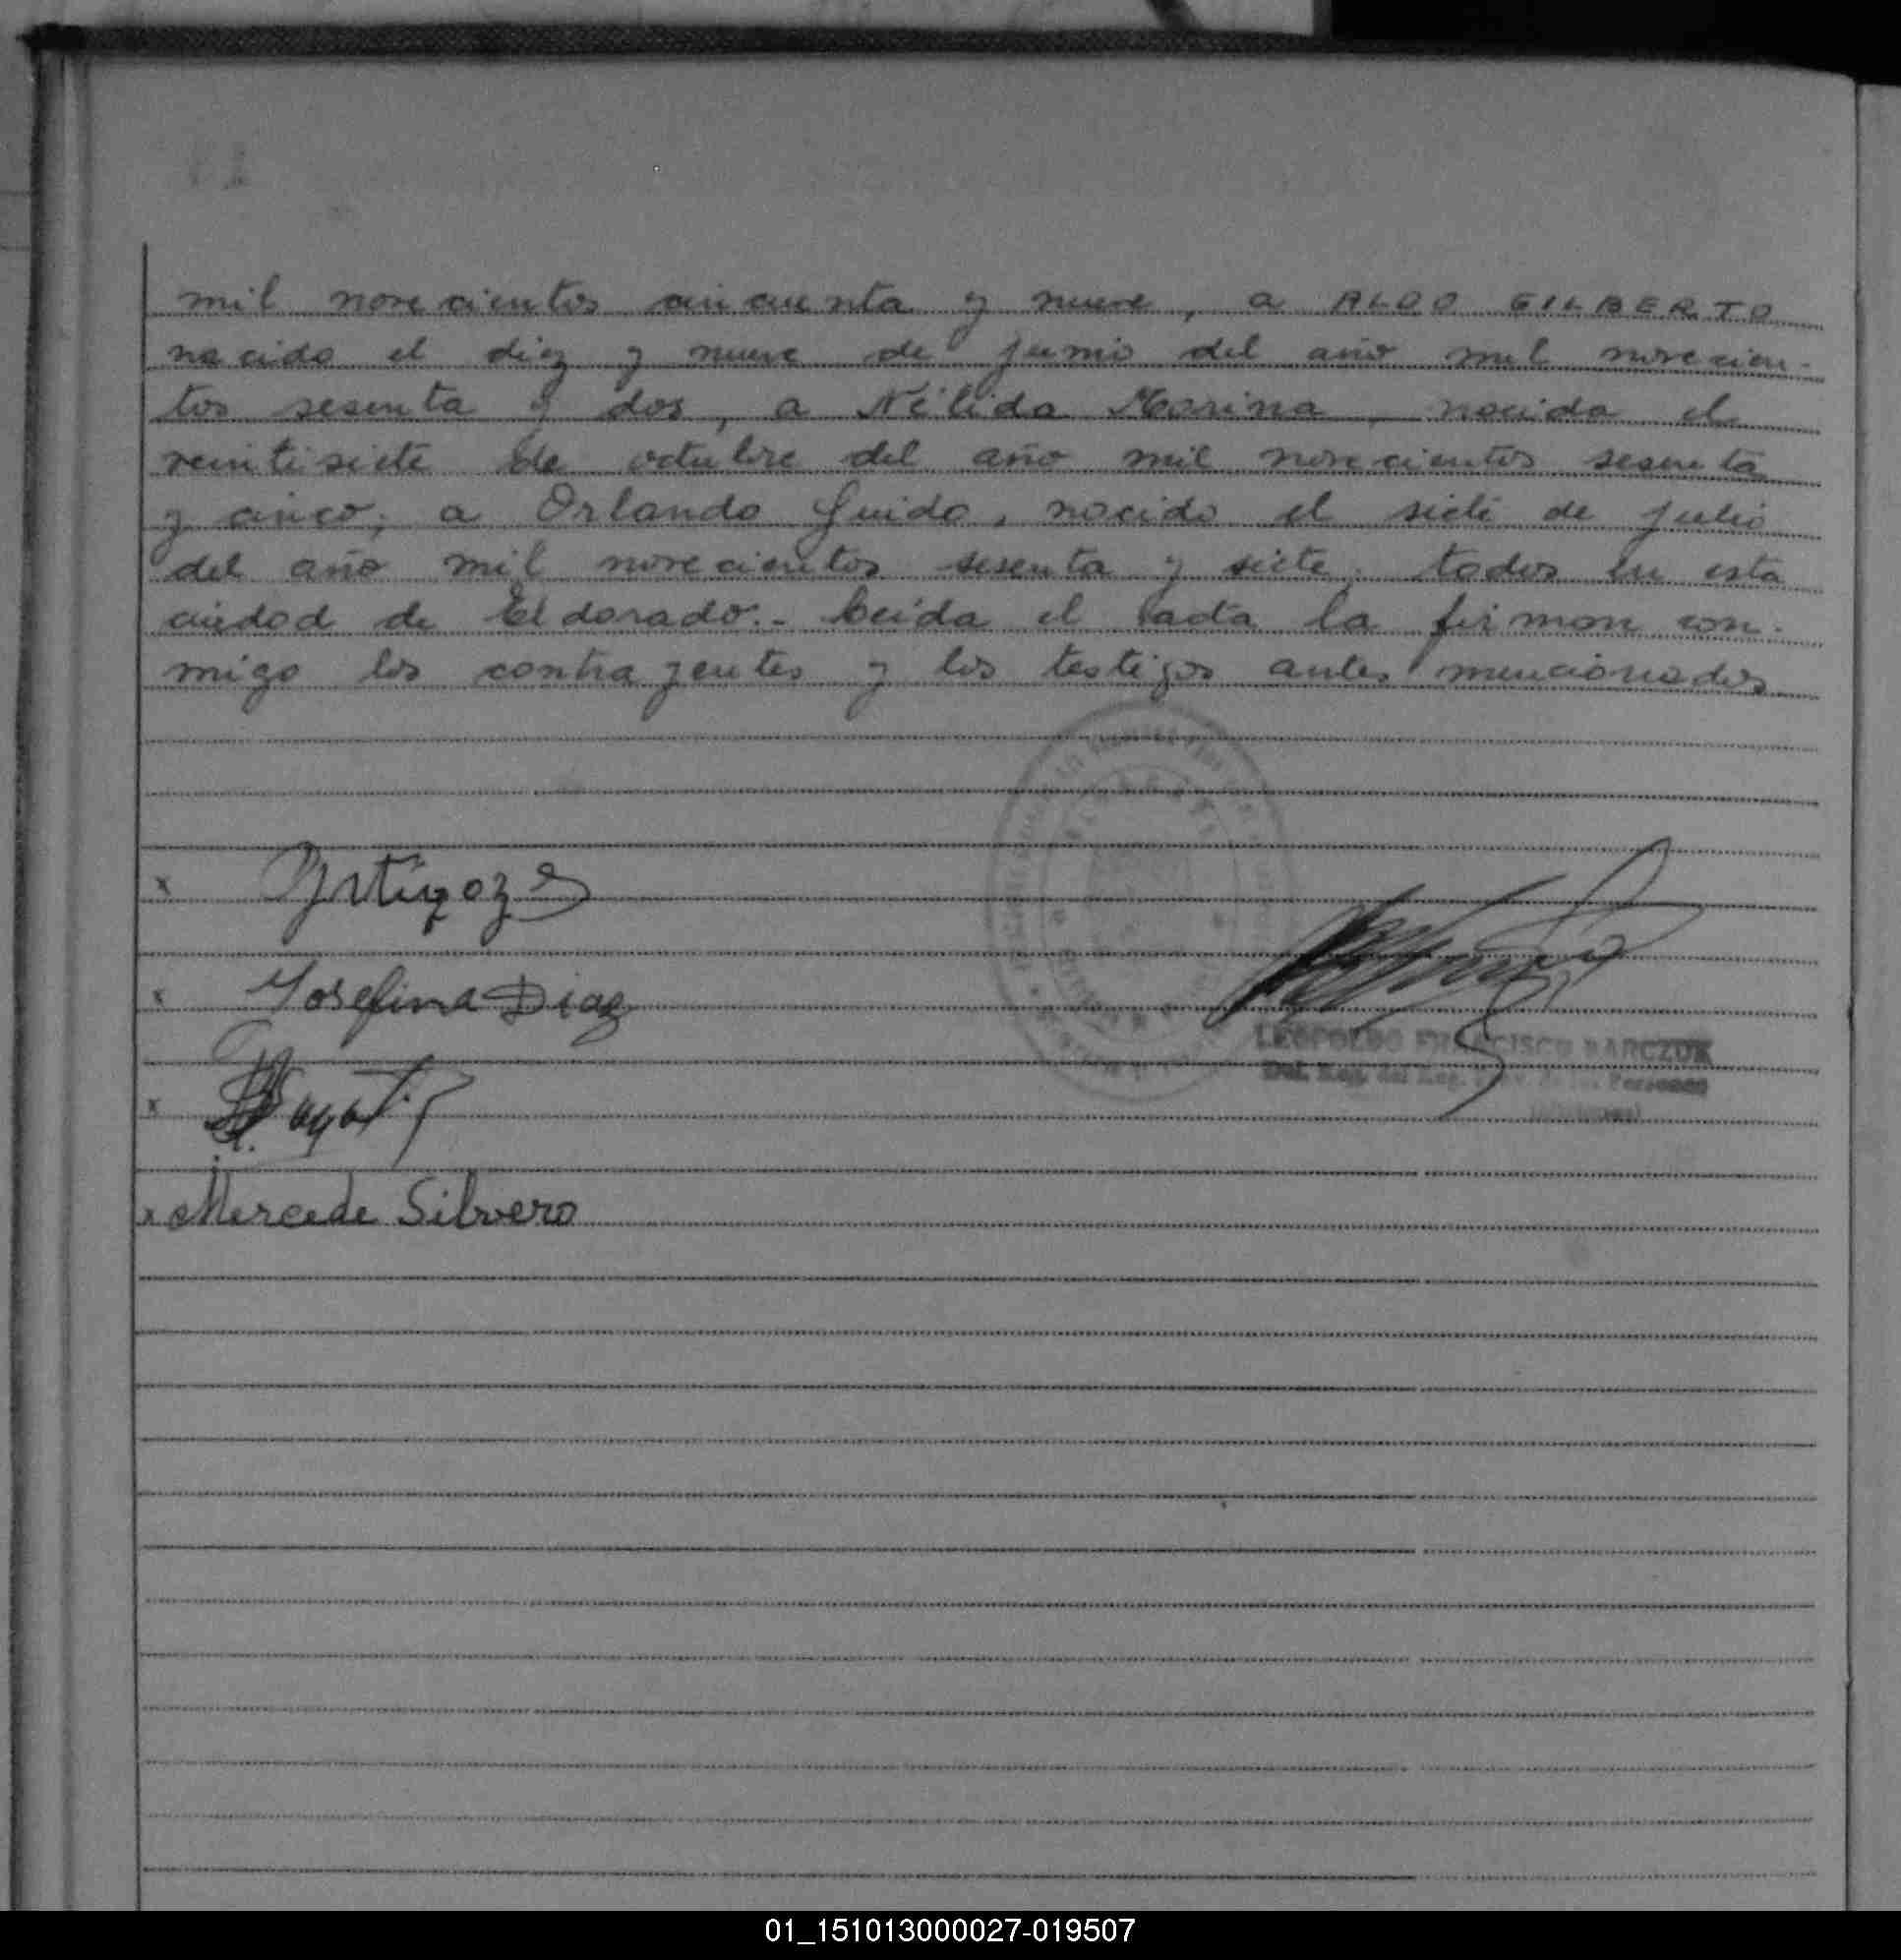 mil novecientos cincuenta y nueve, a ALDO GILBERTO
nacido el diez y nueve de junio del año mil novecien-
tos sesenta y dos, a Nélida Marina, nacida el
veintisiete de octubre del año mil novecientos sesenta
y cinco; a Orlando Guido, nacido el siete de julio
del año mil novecientos sesenta y siete. todos en esta
ciudad de Eldorado.- Leída el acta la firman con-
migo los contrayentes y los testigos antes mencionados
x
x Josefina Diaz
LEOPOLDO FRANCISCO BARCZUK
x
x Mercede Silvero
01_151013000027-019507